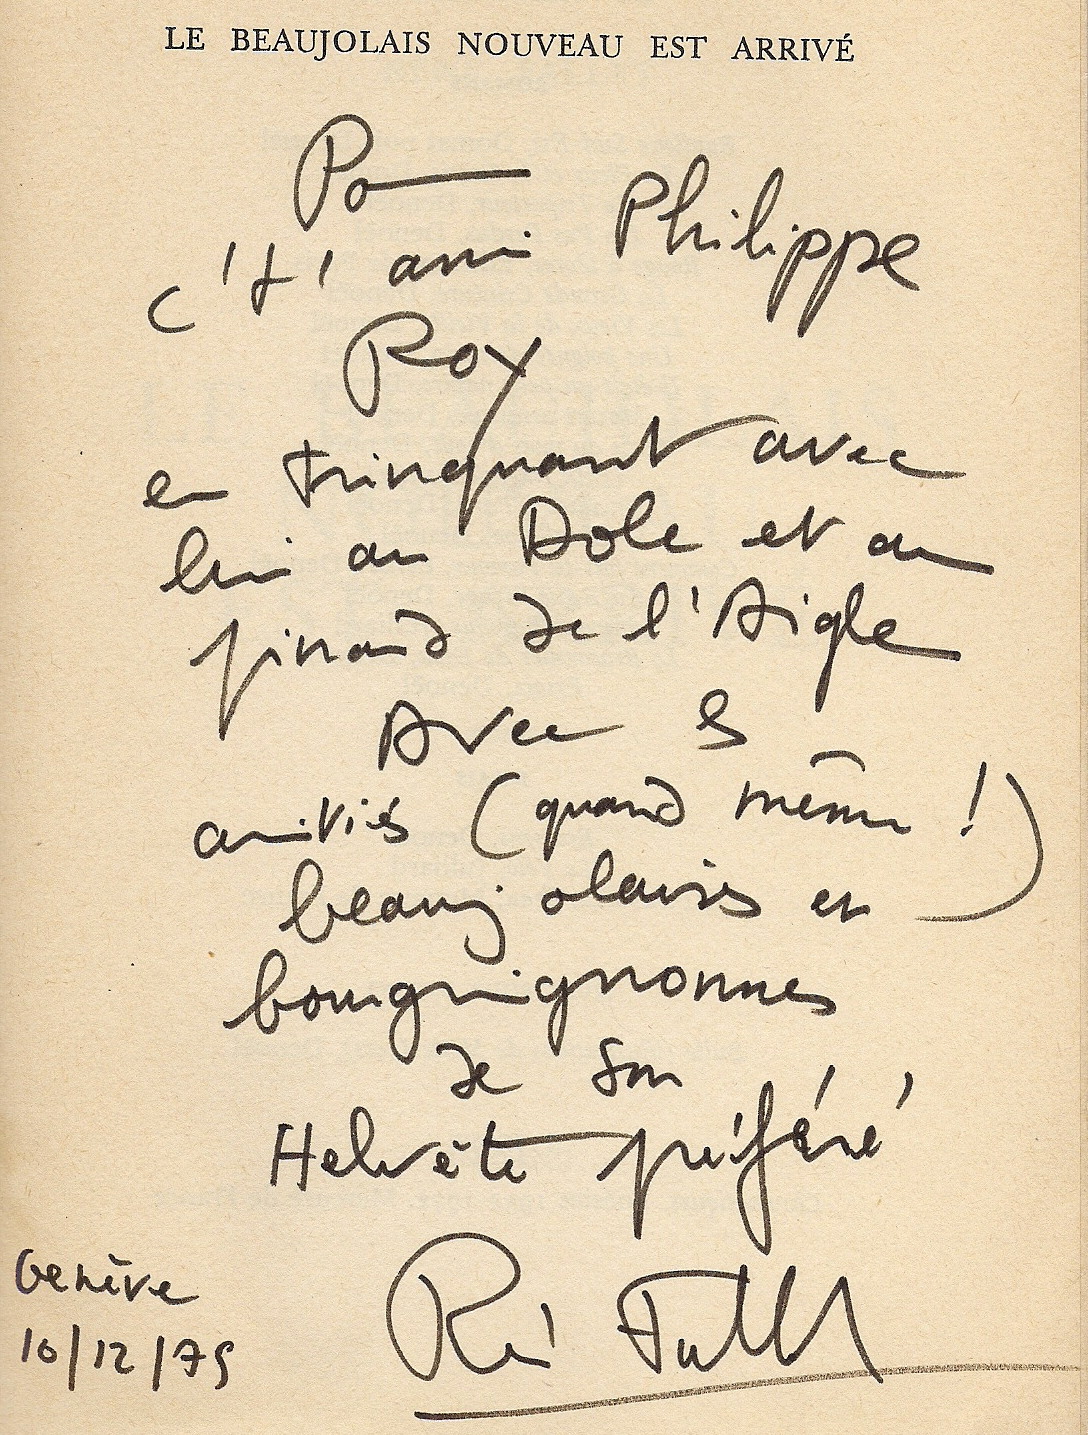 LE BEAUJOLAIS NOUVEAU EST ARRIVÉ
Pour
c't' ami Philippe
Roy
en trinquant avec
lui au Dole et au
pinard de l'Aigle
Avec les
amitiés (quand même !)
beaujolaises et
bourguignonnes
de son
Helvète préféré
René Fallet
Genève
10/12/75